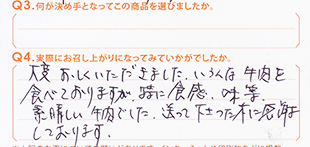 Q3.何が決め手となってこの商品を選びましたか。
Q4.実際にお召し上がりになってみていかがでしたか。
大変おいしくいただきました。いろんな牛肉を
食べておりますが、特に食感、味等
素晴しい牛肉でした。送って下さった方に感謝
しております。